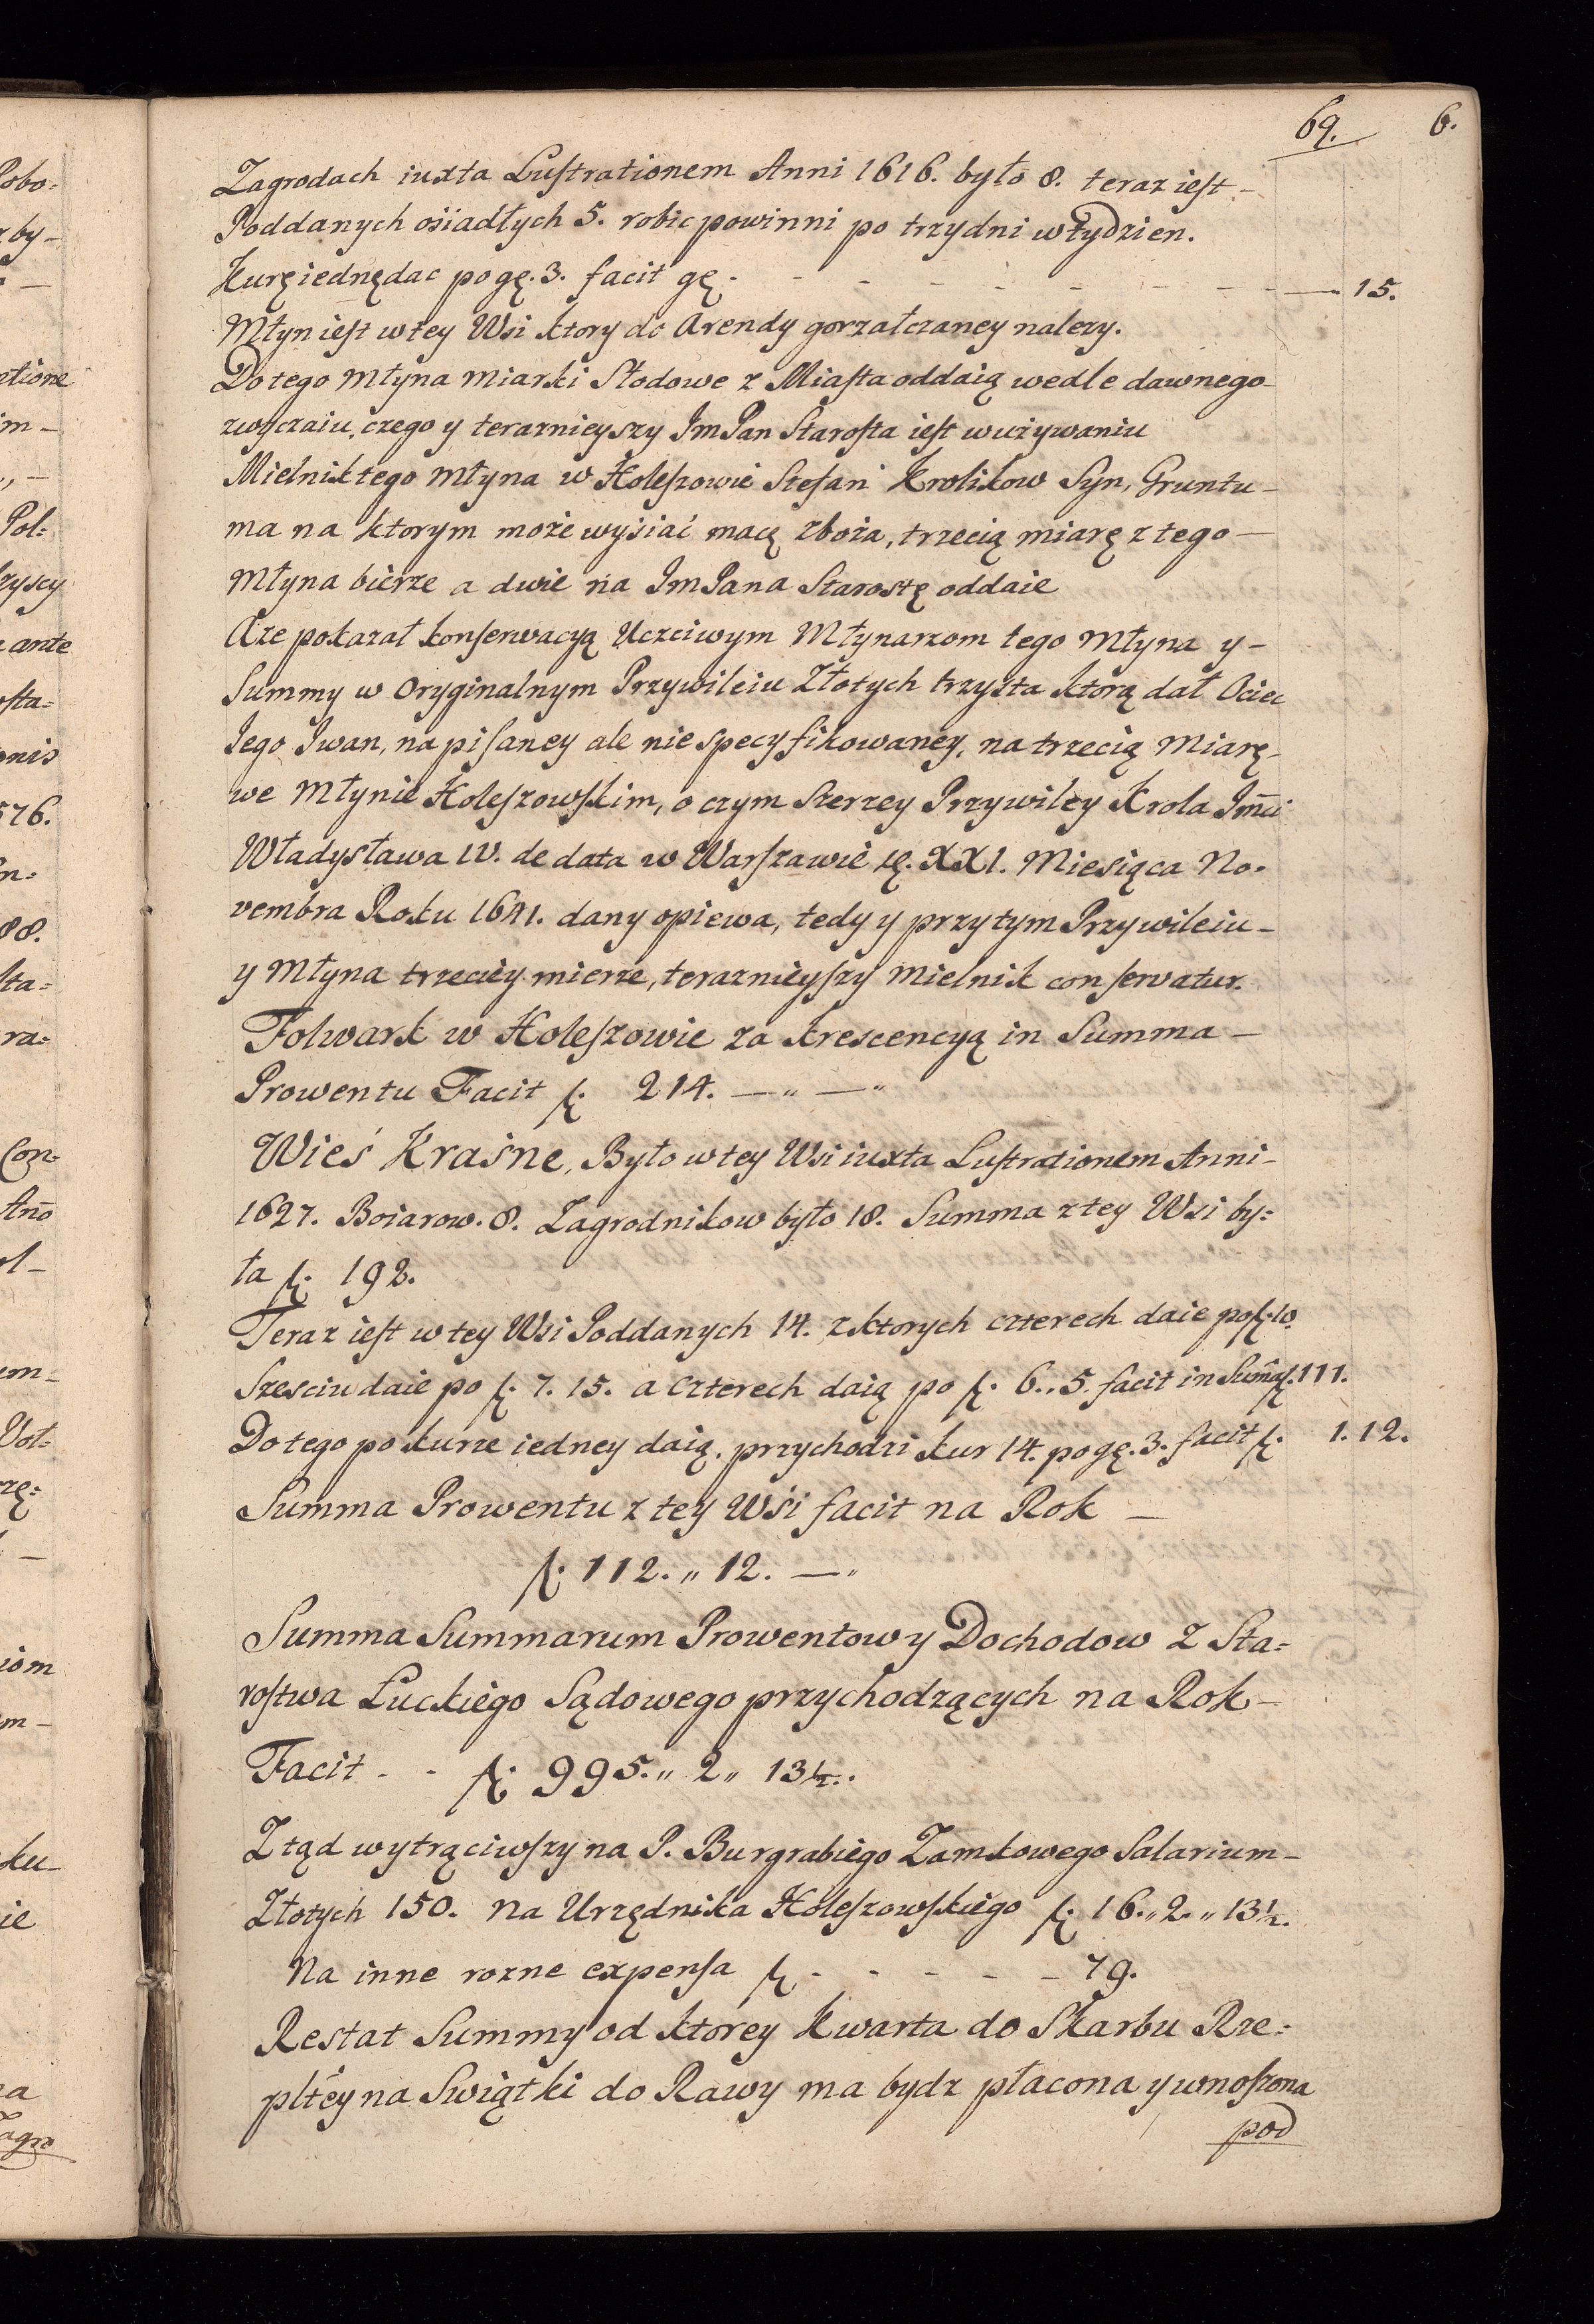 69. 6.
Zagrodach iuxta Lustrationem Anni 1616. było 8. teraz iest –
Poddanych osiadłych 5. robic powinni po trzy dni w tydzien.
Kurę iednę dac po gę. 3. facit gę. - - - - - - - 15.
Młyn iest w tey Wsi ktory do Arendy gorzałczaney nalezy.
Do tego Młyna Miarki Słodowe z Miasta oddaią wedle dawnego
zwyczaiu, czego y teraznieyszy Im Pan Starosta iest w używaniu
Mielnik tego Młyna w Holeszowie Stefan Krolikow Syn, Gruntu –
ma na ktorym może wysiać macę zboża, trzecią miarę z tego –
Młyna bierze a dwie na Im Pana Starostę oddaie
Aze pokazał konserwacyą Uczciwym Młynarzom tego Młyna y –
Summy w Oryginalnym Przywileiu Złotych trzysta ktorą dał Ociec
Iego Iwan, napisaney ale nie specyfikowaney, na trzecią Miarę –
we Młynie Holeszowskim, o czym szerzey Przywiley Krola Jmci
Władysława IV. de data w Warszawie XXI. Miesiąca No-
vembra Roku 1641. dany opiewa, tedy y przy tym Przywileiu –
y Młyna trzeciey mierze, teraznieyszy Mielnik conservatur.
Folwark w Holeszowie za krescencyą in Summa –
Prowentu Facit f. 214. — „ — „
Wieś Kraśne, Było w tey Wsi iuxta Lustrationem Anni –
1627. Boiarow. 8. Zagrodnikow było 18. Summa z tey Wsi by=
ła f. 192.
Teraz iest w tey Wsi Poddanych 14. z ktorych czterech daie po f. 10.
Szesciu daie po f. 7. 15. a czterech daią po f. 6 „ 5. facit in Sum̃a f. 111.
Do tego po kurze iedney daią, przychodzi kur 14. po gę. 3. facit f. 1. 12.
Summa Prowentu z tey Wśi facit na Rok –
f. 112. „ 12. — „
Summa Summarum Prowentow y Dochodow z Sta=
rostwa Łuckiego Sądowego przychodzących na Rok –
Facit - - f. 995. „ 2 „ 13½.
Ztąd wytrąciwszy na P. Burgrabiego Zamkowego Salarium –
Złotych 150. na Urzędnika Holeszowskiego f. 16. „ 2. „ 13½.
Na inne rozne expensa f. - - - - - 79.
Restat Summy od ktorey kwarta do Skarbu Rze=
płtey na Swiątki do Rawy ma bydz płacona y wnoszona
pod